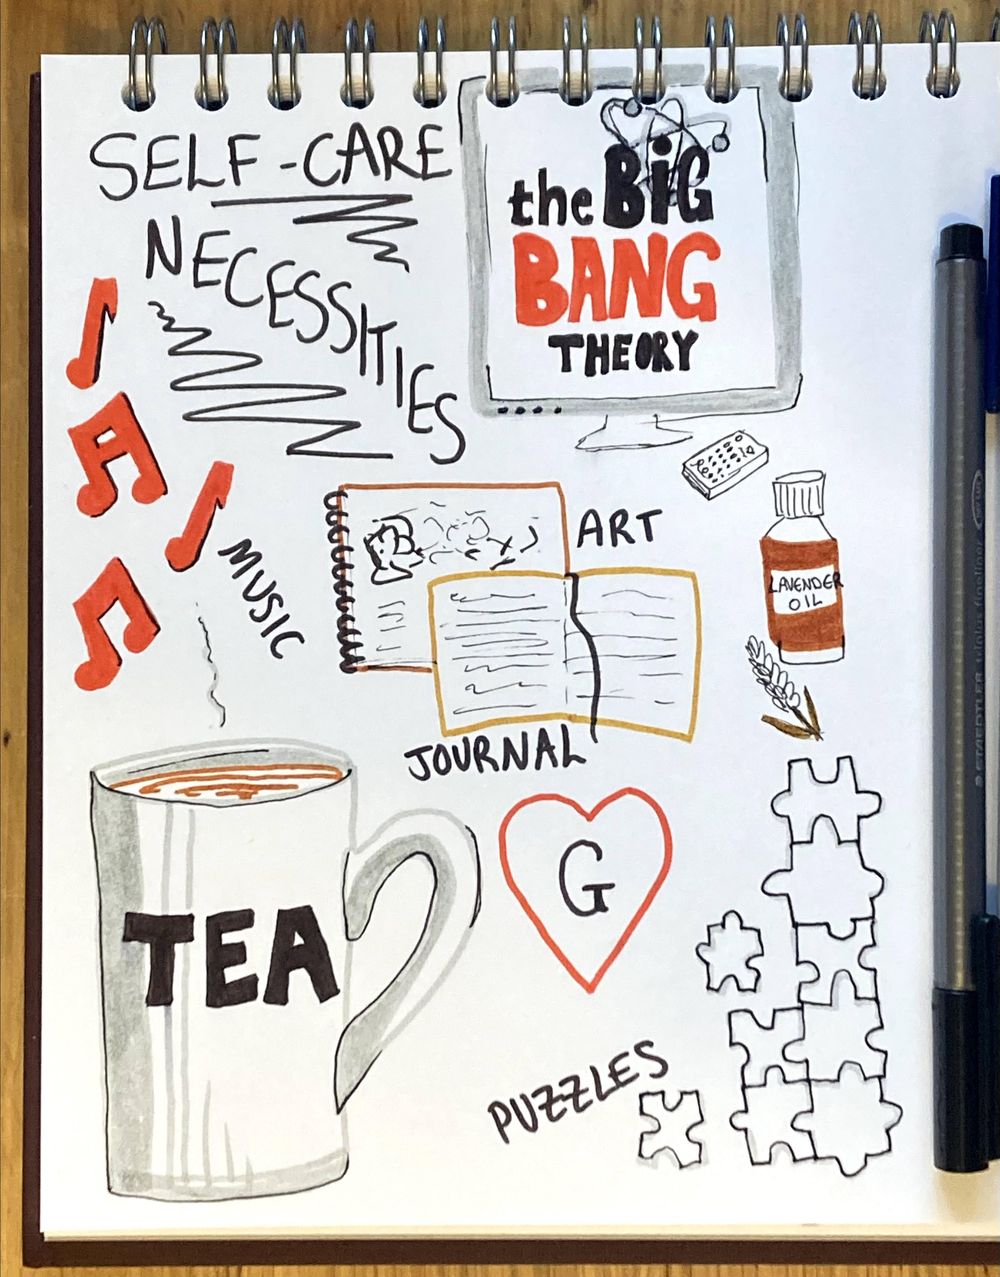 SELF-CARE
NECESSITIES
the BiG
BANG
THEORY
MUSIC
ART
LAVENDER
OIL
JOURNAL
TEA
G
PUZZLES
STAEDTLER